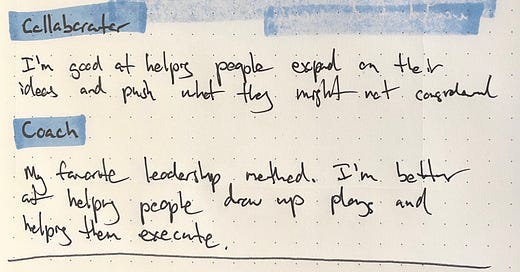 Collaborator
I'm good at helping people expand on their
ideas and push what they might not considered
Coach
My favorite leadership method. I'm better
at helping people draw up plays and
helping them execute.